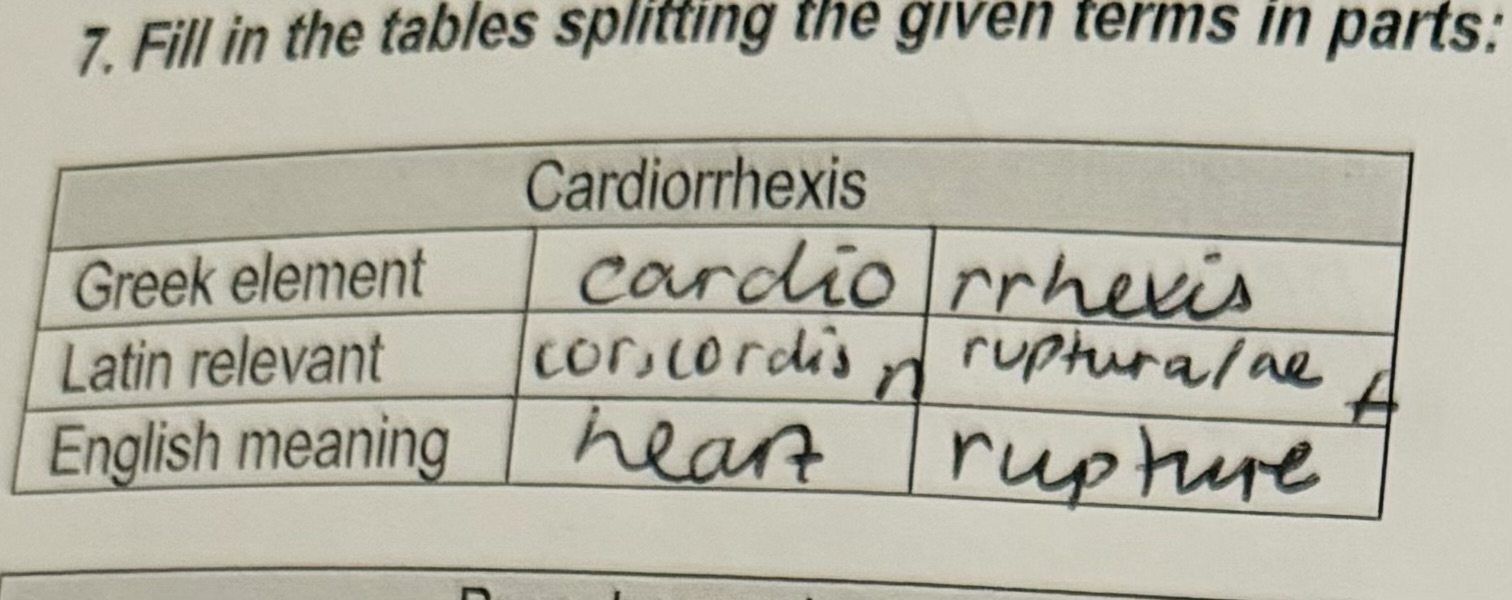 7. Fill in the tables splitting the given terms in parts:
Cardiorrhexis
Greek element cardio rrhexis
Latin relevant cor, cordis n ruptura/ae f
English meaning heart rupture